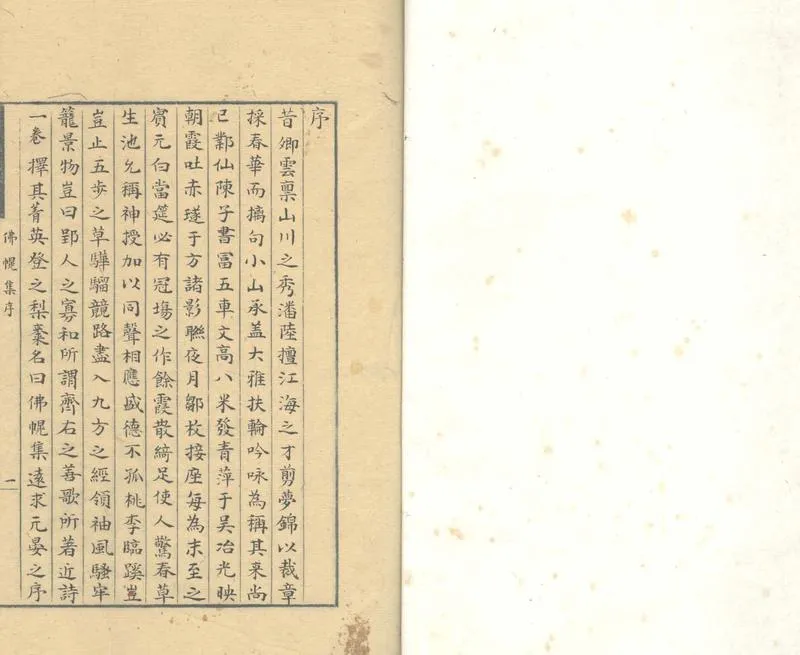 序
昔卿雲禀山川之秀潘陸擅江海之才剪夢錦以裁章
採春華而摛句小山承蓋大雅扶輪吟咏為稱其来尚
已鄴仙陳子書冨五車文高八米發青萍于吴冶光映
朝霞吐赤璲于方諸影聮夜月鄒枚接座每為末至之
賓元白當筵必有冠塲之作餘霞散綺足使人驚春草
生池允稱神授加以同聲相應盛德不孤桃李臨蹊豈
豈止五步之草驊騮競路盡入九方之經領袖風騷牢
籠景物豈曰郢人之寡和所謂齊右之善歌所著近詩
一卷擇其菁英登之梨棗名曰佛幌集遠求元晏之序
佛幌集序
一